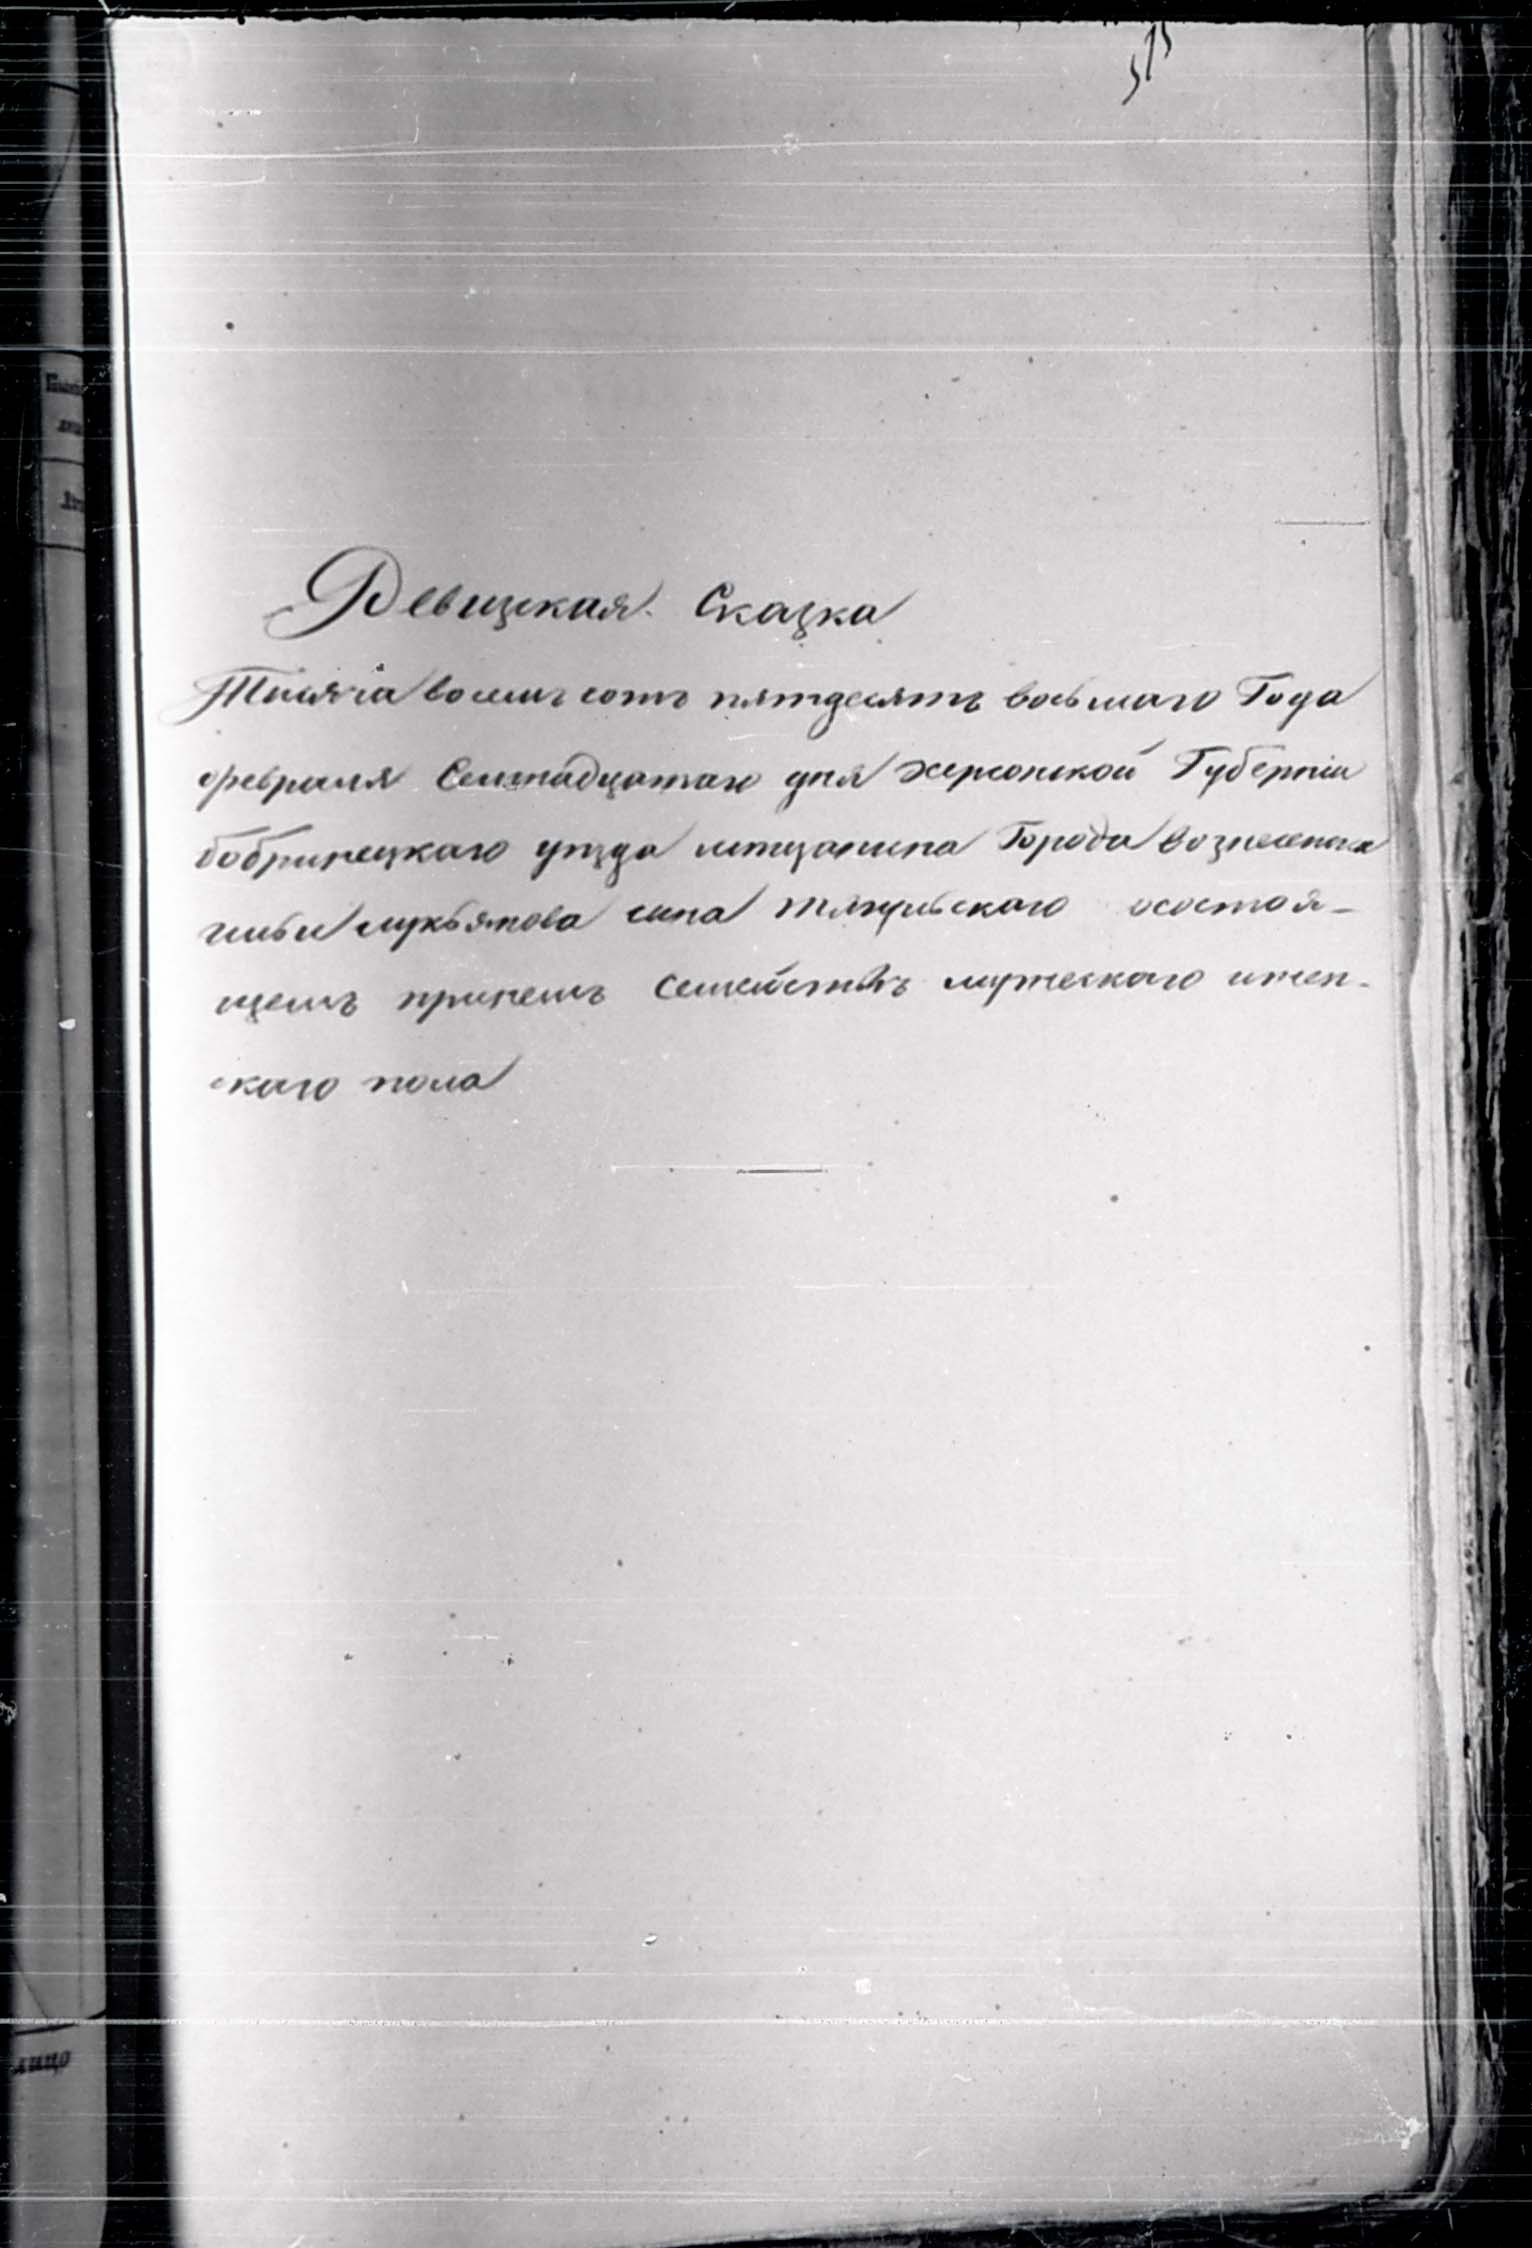 515
Ревизская Сказка
Тысяча восемь сотъ пятдесятъ восьмаго Года
февраля Семнадцатаго дня херсонской Губерніи
бобринецкаго уѣзда мѣщанина Города вознесенска
лукьянова сына осостоя-
щемъ принемъ Семействѣ мужескаго ижен-
скаго пола
лицо